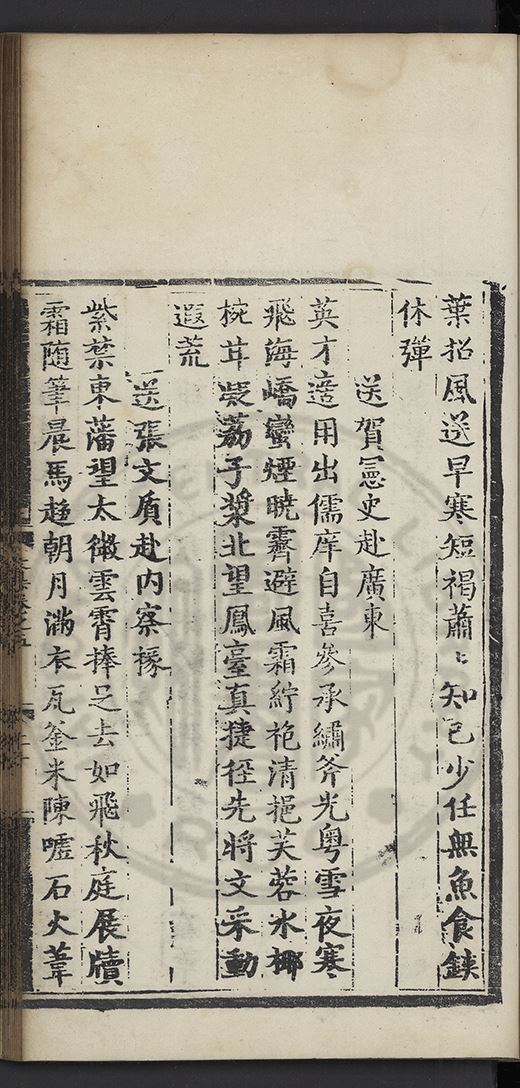 葉招風送早寒短褐蕭〻知已少任無魚食鋏
休彈
送賀憲史赴廣東
英才適用出儒庠自喜參承繡斧光粤雪夜寒
飛海嶠蠻煙曉霽避風霜紵袍清挹芙蓉水椰
椀茸裝荔子漿北望鳳臺真捷徑先將文采動
遐荒
送張文質赴内察掾
紫禁東藩望太微雲霄捧足去如飛秋庭展牘
霜随筆晨馬趍朝月滿衣瓦釜米陳嘘石火葦